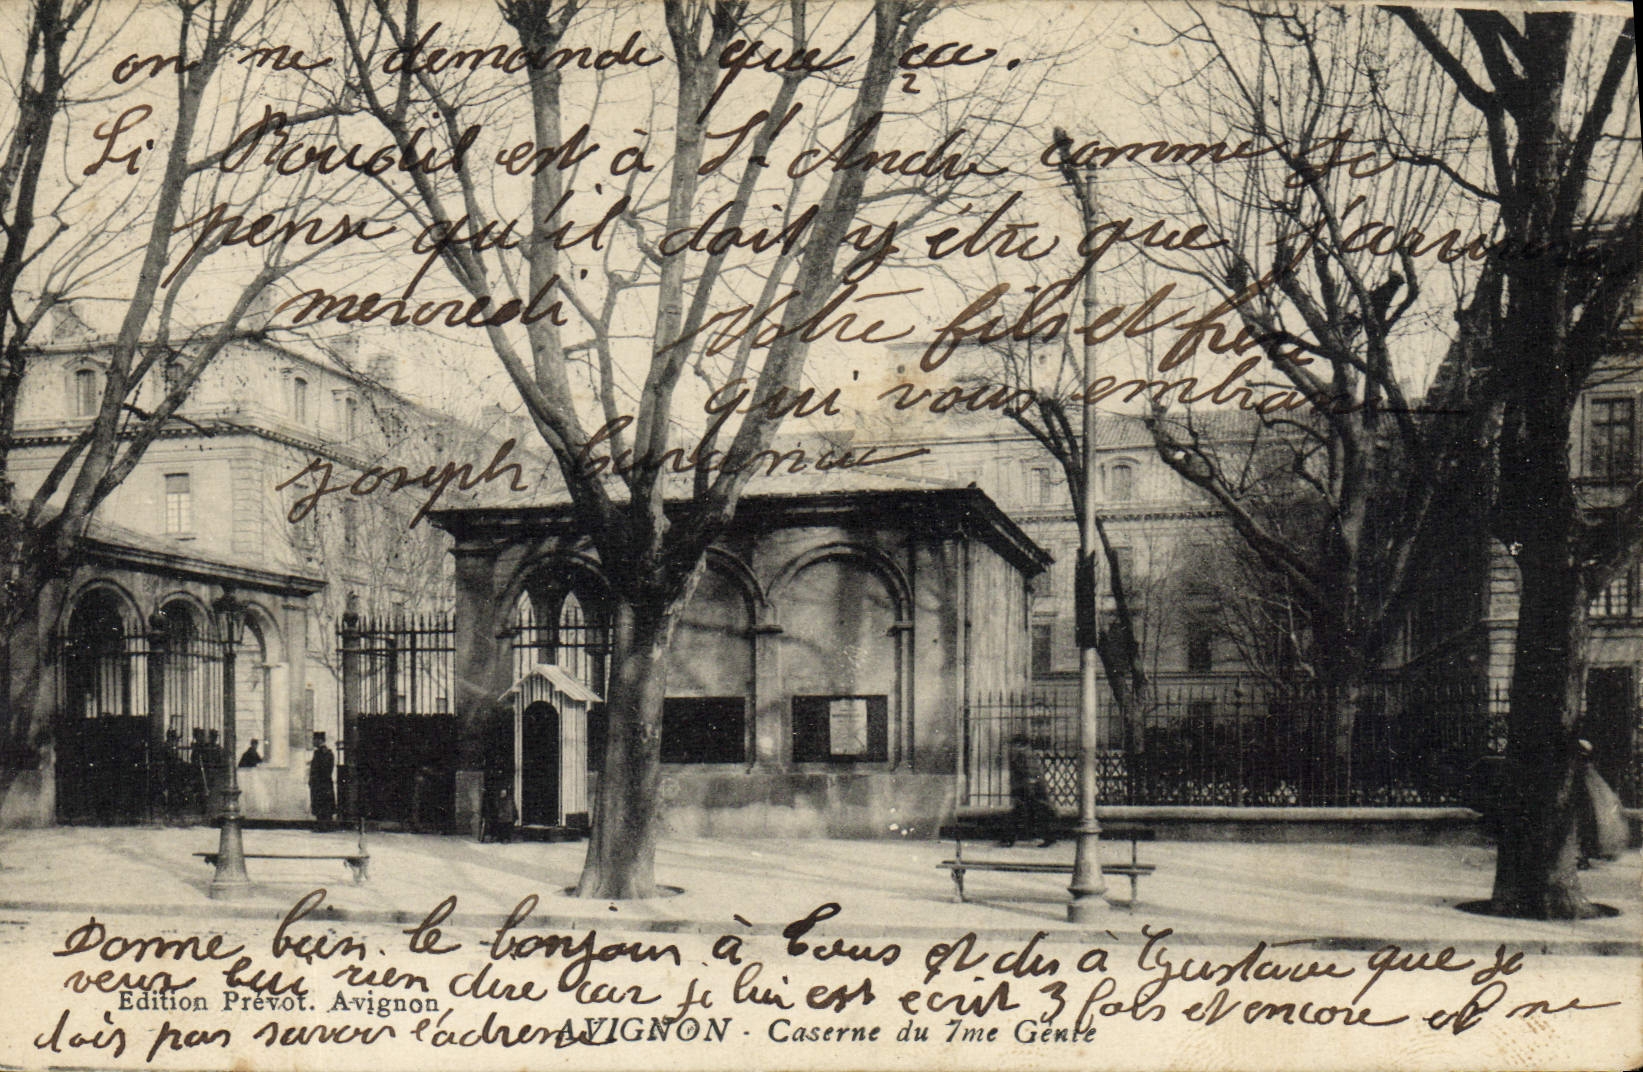 on ne demande que ça.
Si Roudil est à St André comme je
pense qu'il doit y être que j'arrive
mercredi Votre fils et frère
qui vous embrasse
Joseph
Donne bien le bonjour à tous et dis à Gustave que je
veux lui rien dire car je lui est écrit 3 fois et encore et ne
dois pas savoir l'adresse
Edition Prévot. Avignon
AVIGNON - Caserne du 7me Génie